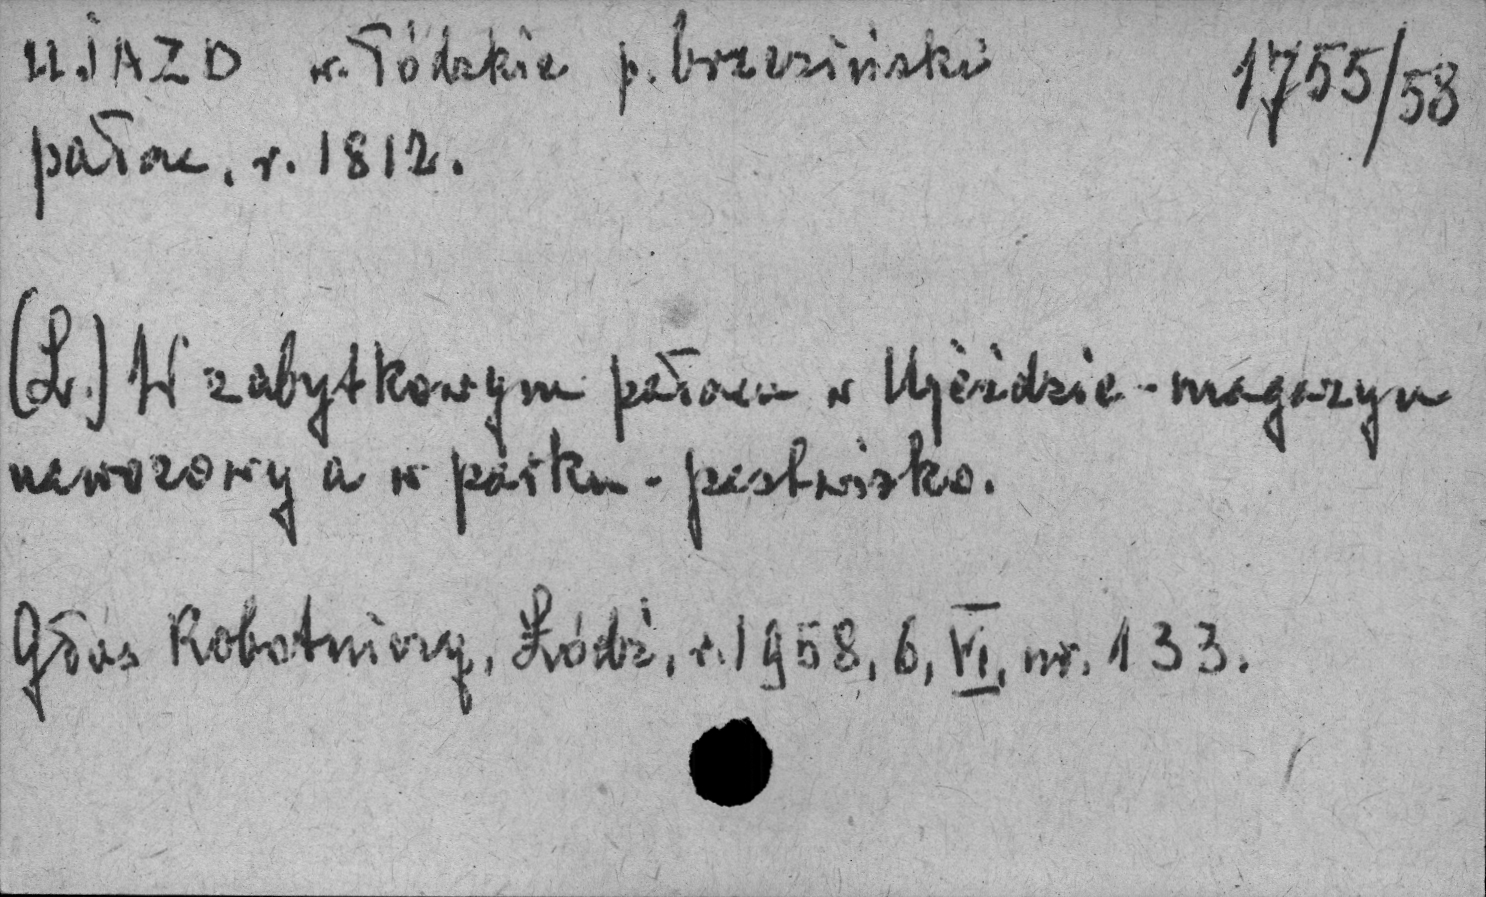 UJAZD w. łódzkie p. brzeziński 1755/58
pałac, r. 1812.
(L.) W zabytkowym pałacu w Ujeździe - magazyn
nawozowy a w parku - pastwisko.
Głos Robotniczy, Łódź, r. 1958, 6, VI, nr. 133.